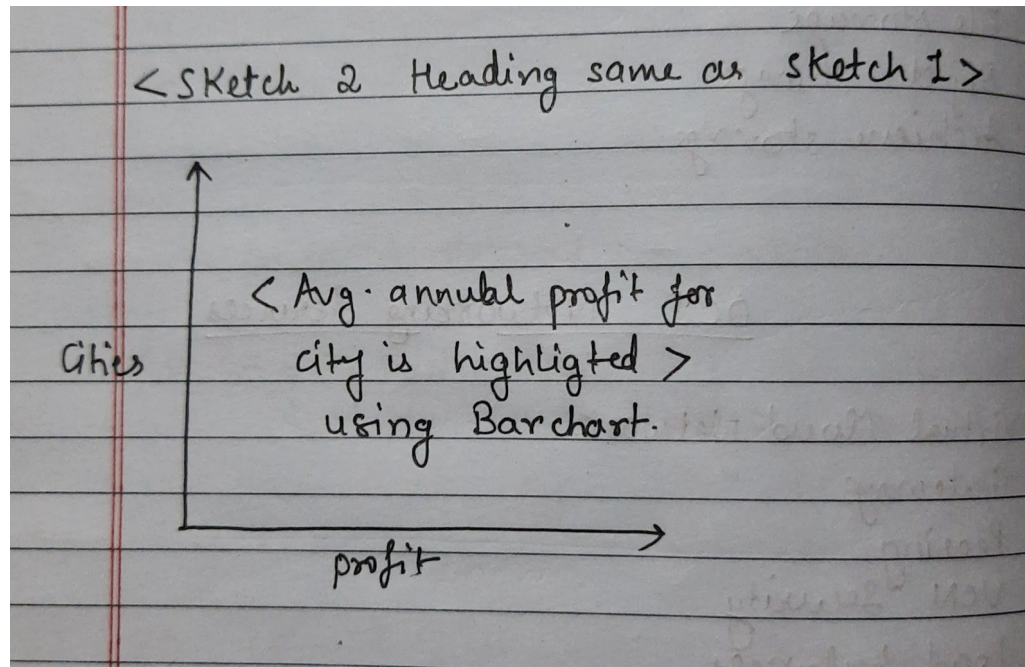 <SKetch 2 Heading same as sketch 1>
< Avg. annubal profit for
Cities
city is highligted >
using Barchart.
profit